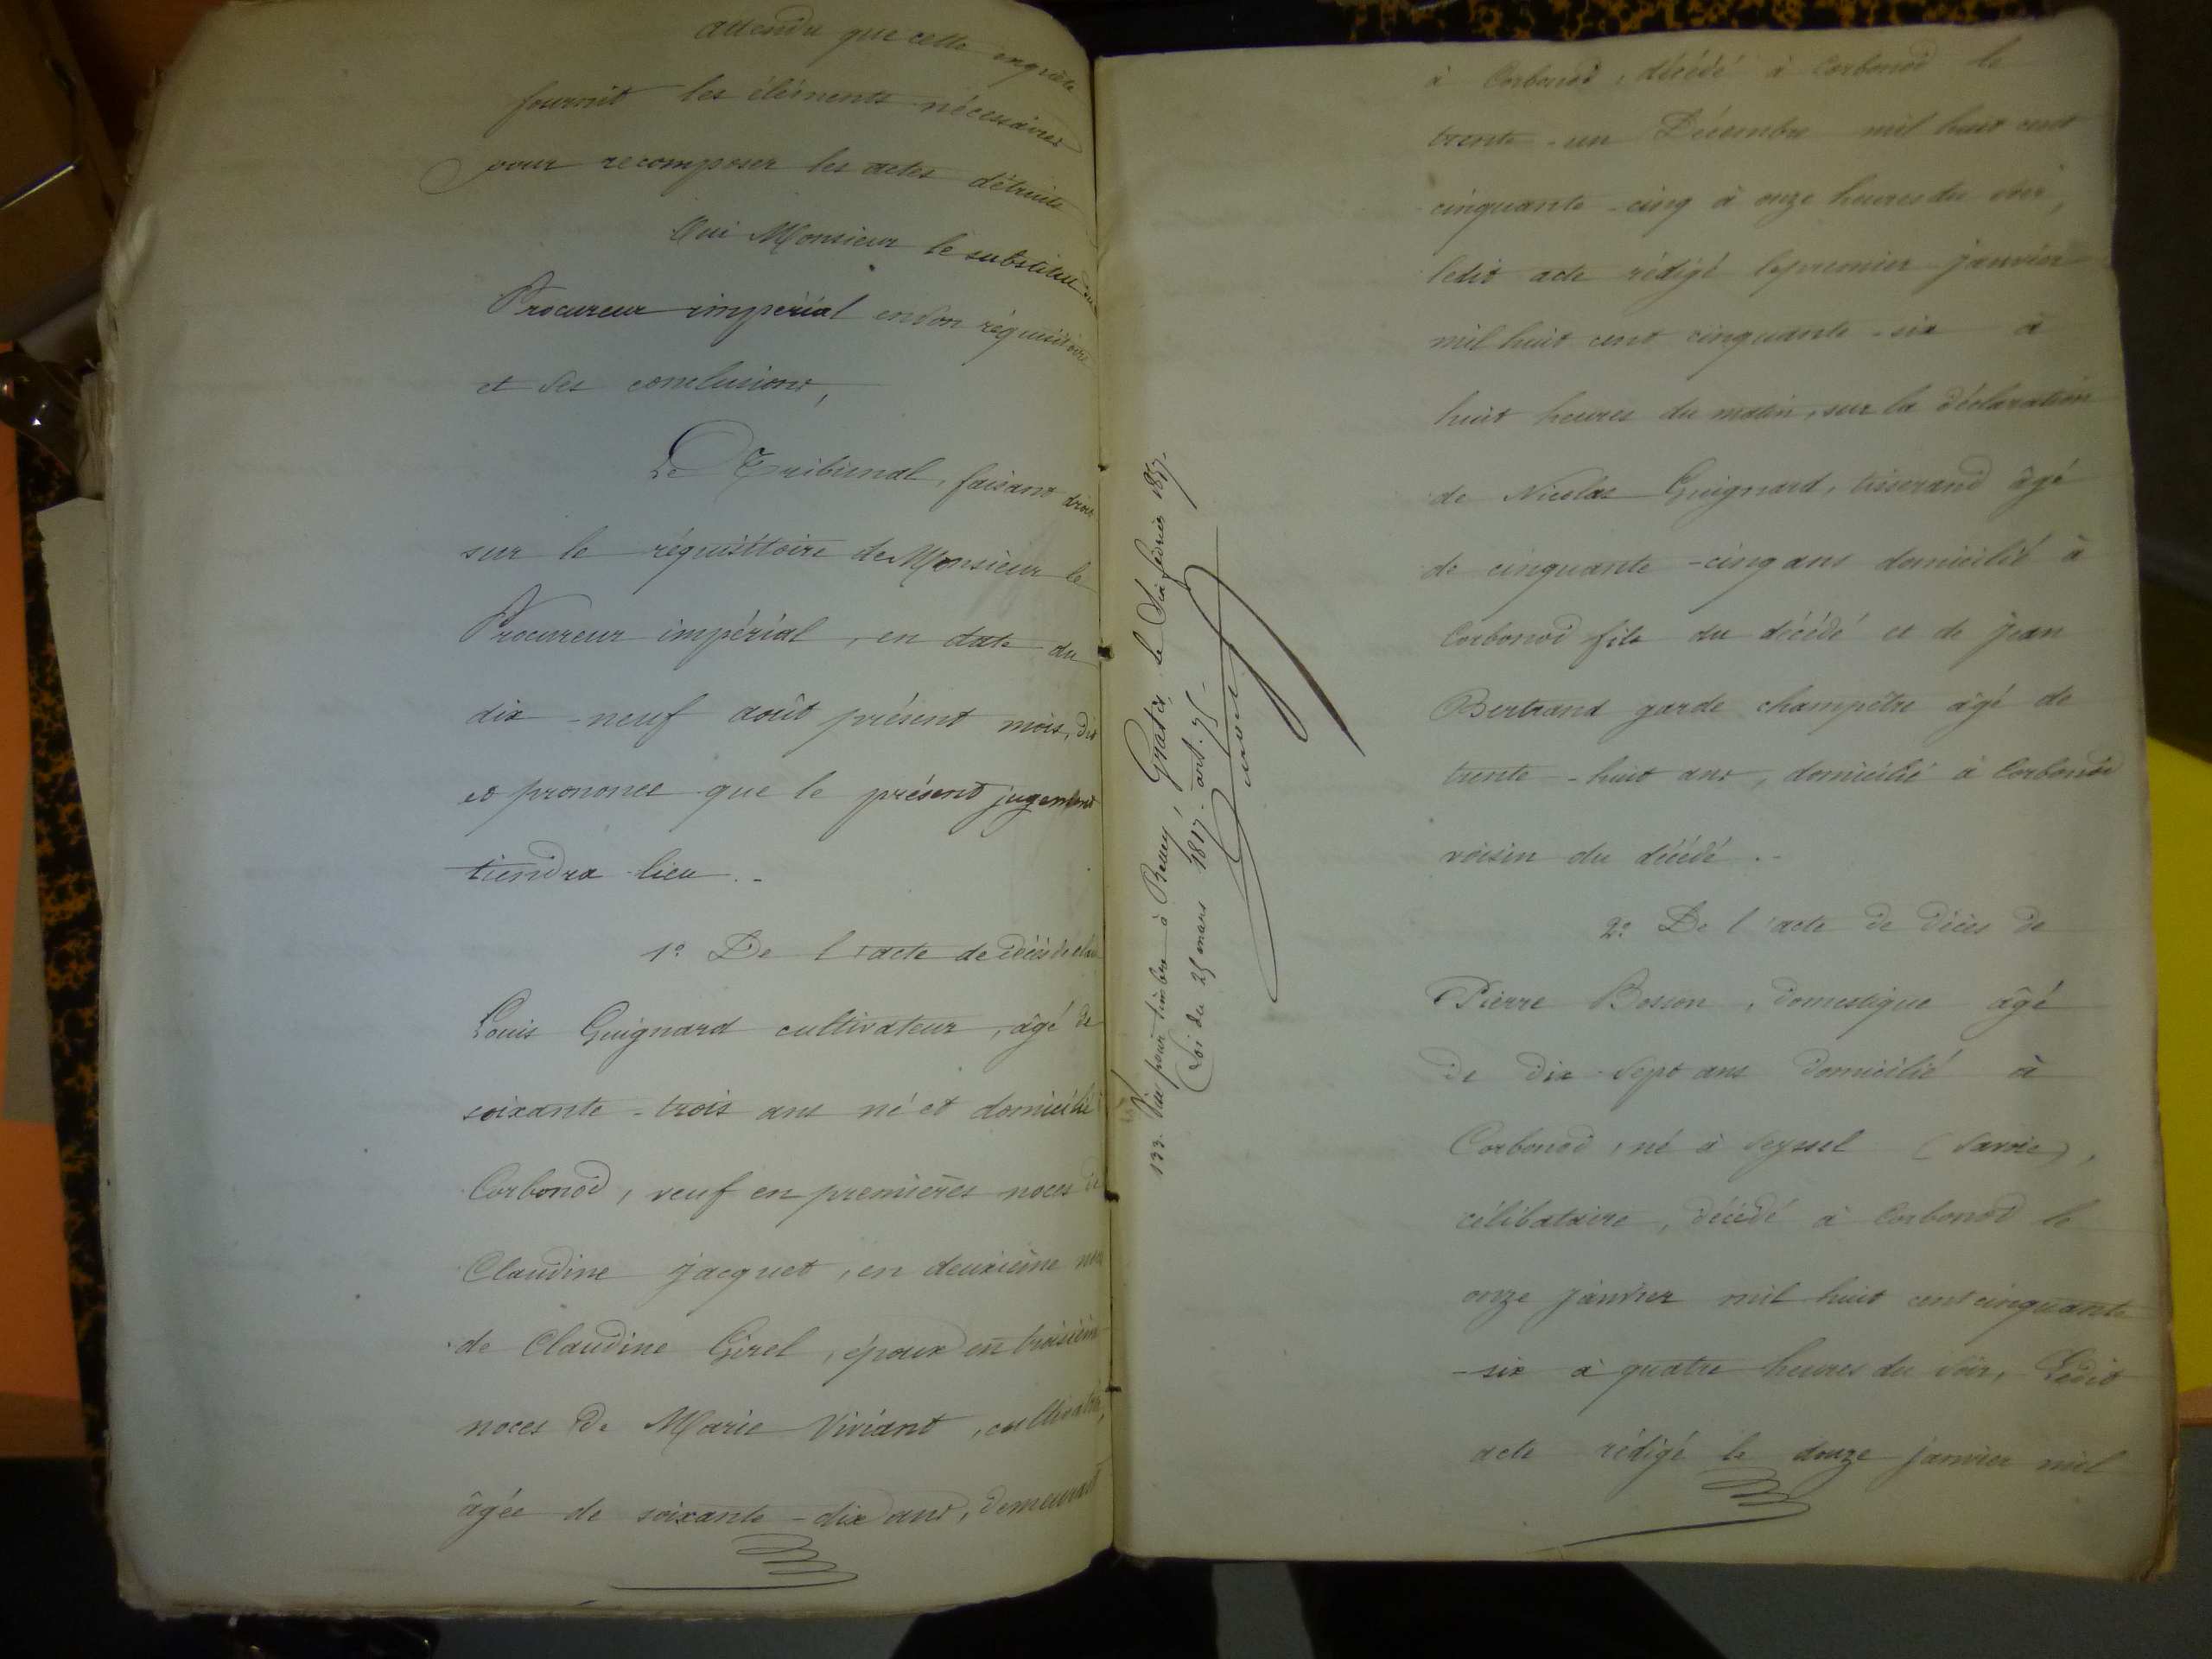 attendu que cette enquête
fournit les éléments nécessaires
pour recomposer les actes détruits
Oui Monsieur le substitut du
Procureur impérial en son réquisitoire
et ses conclusions,
Le Tribunal, faisant droit
sur le réquisitoire de Monsieur le
Procureur impérial, en date du
dix-neuf août présent mois, dit
et prononce que le présent jugement
tiendra lieu.-
1º De l'acte de décès de
Louis Guignard cultivateur, âgé de
soixante-trois ans né et domicilié
Corbonod, veuf en premières noces de
Claudine Jacquet, en deuxième noces
de Claudine Girel, époux en troisième
noces de Marie Viviant, cultivatrice,
âgée de soixante-dix ans, demeurant
133. Visé pour timbre à Belley, Gratis, le Six février 1857.
Loi du 25 mars 1817. art. 75-
à Corbonod, décédé à Corbonod le
trente-un Décembre mil huit cent
cinquante-cinq à onze heures du soir,
ledit acte rédigé le premier janvier
mil huit cent cinquante-six à
huit heures du matin, sur la déclaration
de Nicolas Guignard, tisserand âgé
de cinquante-cinq ans domicilié à
Corbonod fils du décédé et de Jean
Bertrand garde champêtre âgé de
trente-huit ans, domicilié à Corbonod
voisin du décédé.-
2º De l'acte de décès de
Pierre Bosson, domestique âgé
de dix-sept ans domicilié à
Corbonod, né à Seyssel (Savoie),
célibataire, décédé à Corbonod le
onze janvier mil huit cent cinquante
-six à quatre heures du soir, Ledit
acte rédigé le douze janvier mil